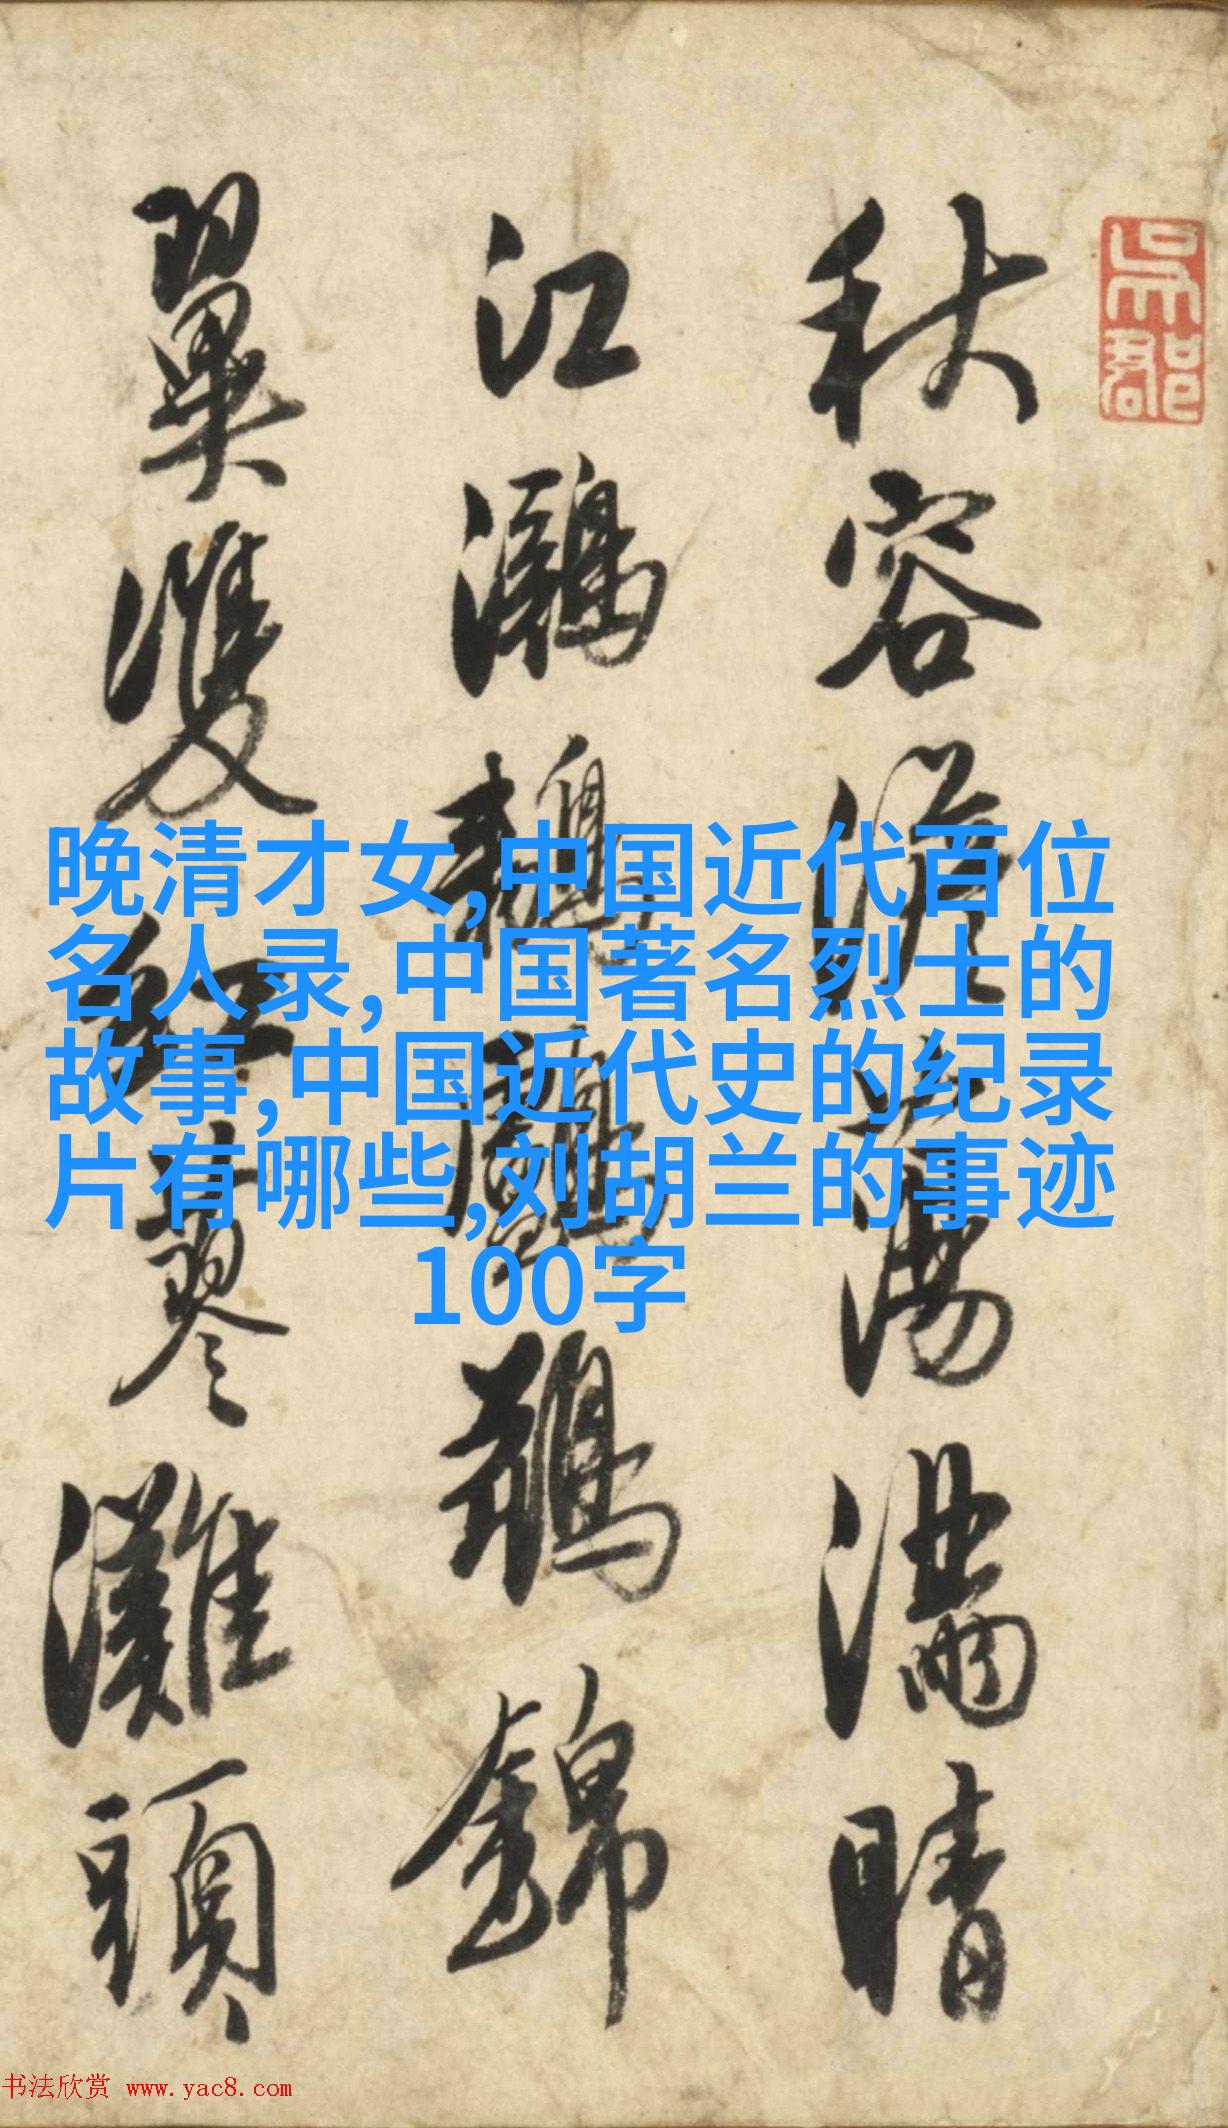 吳郡
秋容澹蕩滿晴
江鸂鶒鸕鶿錦
翼雙紅蓼灘頭
晚清才女,中国近代百位
名人录,中国著名烈士的
故事,中国近代史的纪录
片有哪些,刘胡兰的事迹
100字
书法欣赏 www.yac8.com